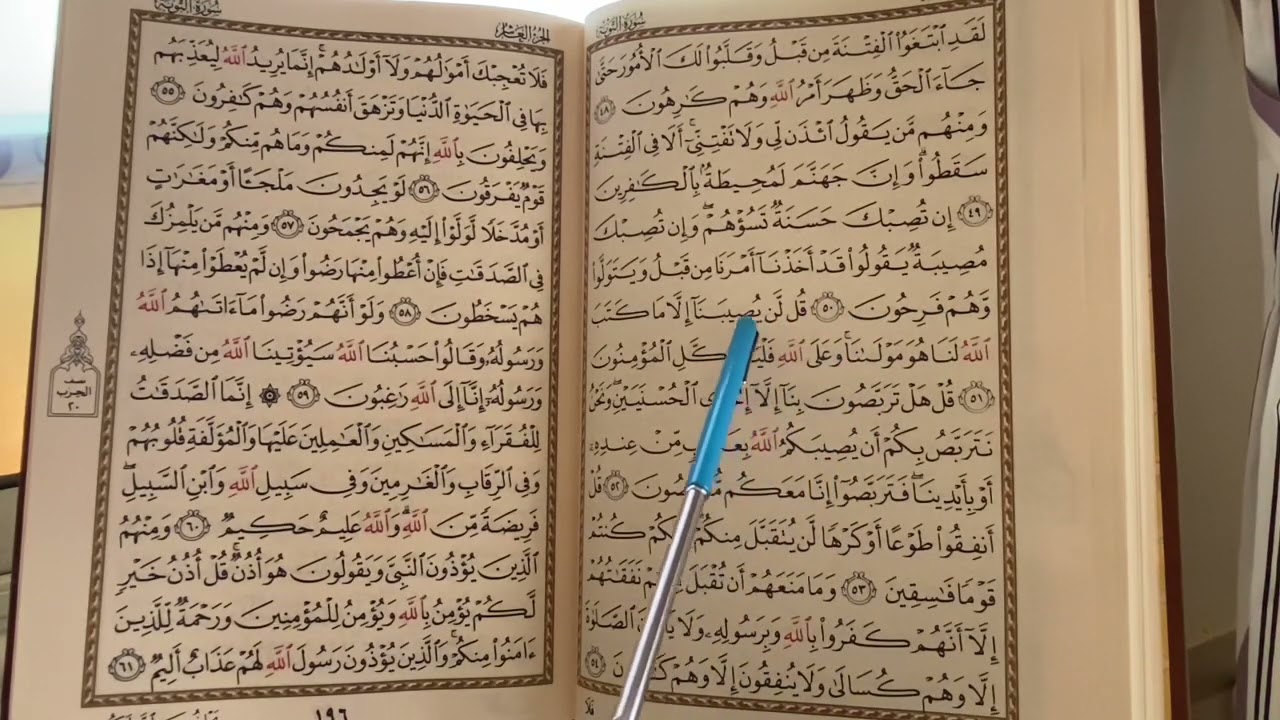 سُورَةُ التَّوْبَةِ
لَقَدِ ٱبْتَغَوُا۟ ٱلْفِتْنَةَ مِن قَبْلُ وَقَلَّبُوا۟ لَكَ ٱلْأُمُورَ حَتَّىٰ
جَآءَ ٱلْحَقُّ وَظَهَرَ أَمْرُ ٱللَّهِ وَهُمْ كَـٰرِهُونَ ٤٨
وَمِنْهُم مَّن يَقُولُ ٱئْذَن لِّى وَلَا تَفْتِنِّىٓ ۚ أَلَا فِى ٱلْفِتْنَةِ
سَقَطُوا۟ ۗ وَإِنَّ جَهَنَّمَ لَمُحِيطَةٌۢ بِٱلْكَـٰفِرِينَ
٤٩ إِن تُصِبْكَ حَسَنَةٌ تَسُؤْهُمْ ۖ وَإِن تُصِبْكَ
مُصِيبَةٌ يَقُولُوا۟ قَدْ أَخَذْنَآ أَمْرَنَا مِن قَبْلُ وَيَتَوَلَّوا۟
وَّهُمْ فَرِحُونَ ٥٠ قُل لَّن يُصِيبَنَآ إِلَّا مَا كَتَبَ
ٱللَّهُ لَنَا هُوَ مَوْلَىٰنَا ۚ وَعَلَى ٱللَّهِ ٱلْمُؤْمِنُونَ
٥١ قُلْ هَلْ تَرَبَّصُونَ بِنَآ إِلَّآ ٱلْحُسْنَيَيْنِ ۖ وَنَحْنُ
نَتَرَبَّصُ بِكُمْ أَن يُصِيبَكُمُ ٱللَّهُ مِّنْ عِندِهِۦٓ
أَوْ بِأَيْدِينَا ۖ فَتَرَبَّصُوٓا۟ إِنَّا مَعَكُم ٥٢ قُلْ
أَنفِقُوا۟ طَوْعًا أَوْ كَرْهًا لَّن يُتَقَبَّلَ مِنكُمْ كُنتُمْ
قَوْمًا فَـٰسِقِينَ ٥٣ وَمَا مَنَعَهُمْ أَن تُقْبَلَ نَفَقَـٰتُهُمْ
إِلَّآ أَنَّهُمْ كَفَرُوا۟ بِٱللَّهِ وَبِرَسُولِهِۦ وَلَا ٱلصَّلَوٰةَ
إِلَّا وَهُمْ كُسَالَىٰ وَلَا يُنفِقُونَ إِلَّا وَهُمْ ٥٤
سُورَةُ التَّوْبَةِ
الجُزْءُ العَاشِرُ
فَلَا تُعْجِبْكَ أَمْوَٰلُهُمْ وَلَآ أَوْلَـٰدُهُمْ ۚ إِنَّمَا يُرِيدُ ٱللَّهُ لِيُعَذِّبَهُم
بِهَا فِى ٱلْحَيَوٰةِ ٱلدُّنْيَا وَتَزْهَقَ أَنفُسُهُمْ وَهُمْ كَـٰفِرُونَ ٥٥
وَيَحْلِفُونَ بِٱللَّهِ إِنَّهُمْ لَمِنكُمْ وَمَا هُم مِّنكُمْ وَلَـٰكِنَّهُمْ
قَوْمٌ يَفْرَقُونَ ٥٦ لَوْ يَجِدُونَ مَلْجَـًٔا أَوْ مَغَـٰرَٰتٍ
أَوْ مُدَّخَلًا لَّوَلَّوْا۟ إِلَيْهِ وَهُمْ يَجْمَحُونَ ٥٧ وَمِنْهُم مَّن يَلْمِزُكَ
فِى ٱلصَّدَقَـٰتِ فَإِنْ أُعْطُوا۟ مِنْهَا رَضُوا۟ وَإِن لَّمْ يُعْطَوْا۟ مِنْهَآ إِذَا
هُمْ يَسْخَطُونَ ٥٨ وَلَوْ أَنَّهُمْ رَضُوا۟ مَآ ءَاتَىٰهُمُ ٱللَّهُ
وَرَسُولُهُۥ وَقَالُوا۟ حَسْبُنَا ٱللَّهُ سَيُؤْتِينَا ٱللَّهُ مِن فَضْلِهِۦ
وَرَسُولُهُۥٓ إِنَّآ إِلَى ٱللَّهِ رَٰغِبُونَ ٥٩ ۞ إِنَّمَا ٱلصَّدَقَـٰتُ
لِلْفُقَرَآءِ وَٱلْمَسَـٰكِينِ وَٱلْعَـٰمِلِينَ عَلَيْهَا وَٱلْمُؤَلَّفَةِ قُلُوبُهُمْ
وَفِى ٱلرِّقَابِ وَٱلْغَـٰرِمِينَ وَفِى سَبِيلِ ٱللَّهِ وَٱبْنِ ٱلسَّبِيلِ ۖ
فَرِيضَةً مِّنَ ٱللَّهِ ۗ وَٱللَّهُ عَلِيمٌ حَكِيمٌ ٦٠ وَمِنْهُمُ
ٱلَّذِينَ يُؤْذُونَ ٱلنَّبِىَّ وَيَقُولُونَ هُوَ أُذُنٌ ۚ قُلْ أُذُنُ خَيْرٍ
لَّكُمْ يُؤْمِنُ بِٱللَّهِ وَيُؤْمِنُ لِلْمُؤْمِنِينَ وَرَحْمَةٌ لِّلَّذِينَ
ءَامَنُوا۟ مِنكُمْ ۚ وَٱلَّذِينَ يُؤْذُونَ رَسُولَ ٱللَّهِ لَهُمْ عَذَابٌ أَلِيمٌ ٦١
نصف
الحزب
٢٠
١٩٦